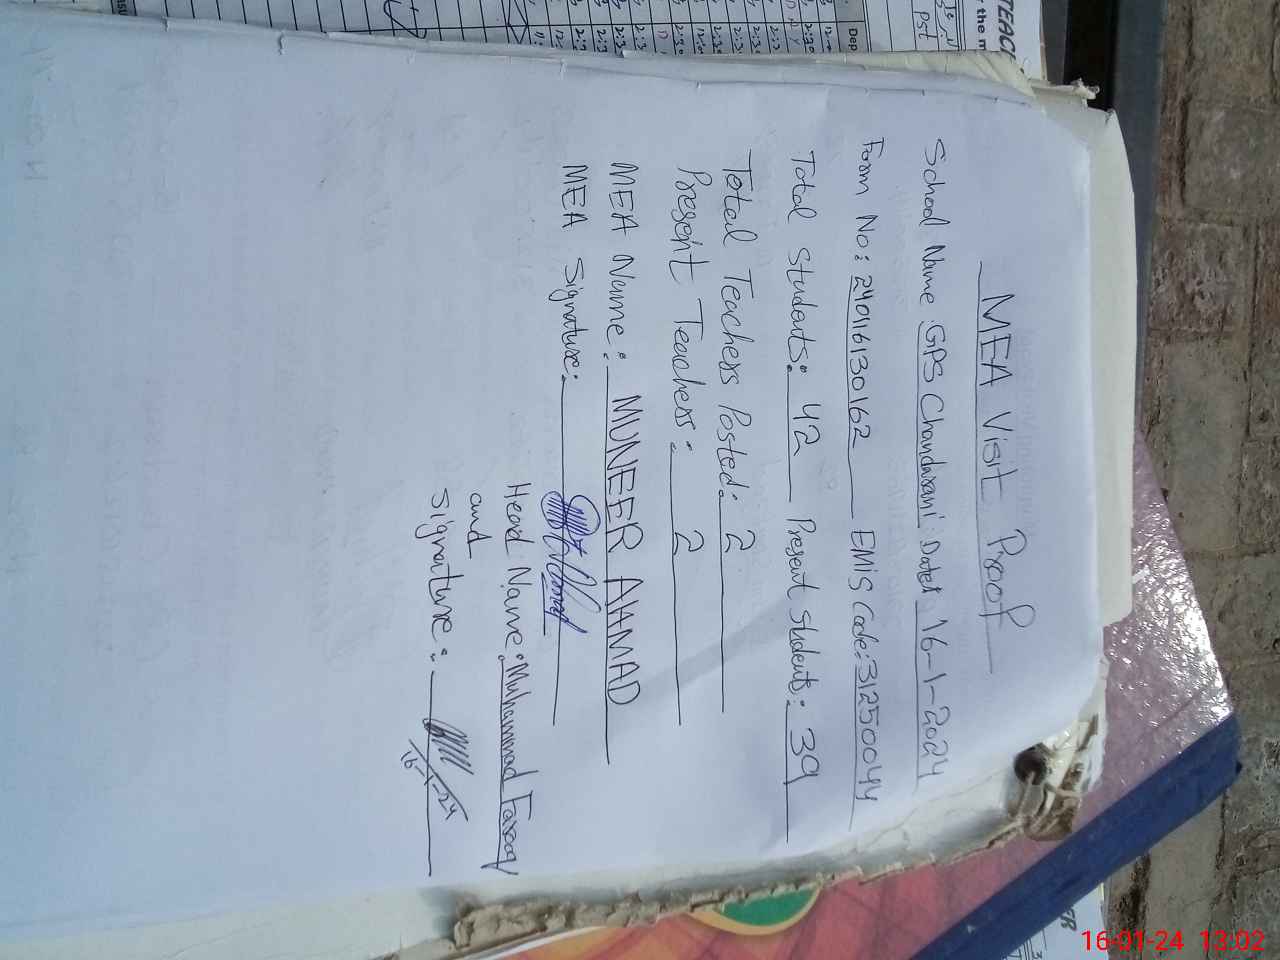 MEA Visit Proof
School Name: GPS Chandarani Date: 16-1-2024
Form No: 240116130162 EMIS Code: 31250044
Total Students: 42 Present Students: 39
Total Teachers Posted: 2
Present Teachers: 2
MEA Name: MUNEER AHMAD
MEA Signature:
Head Name: Muhammad Farooq
and
Signature:
16-1-24
TEAC
r the m
Pst
Dep
16-01-24 13:02